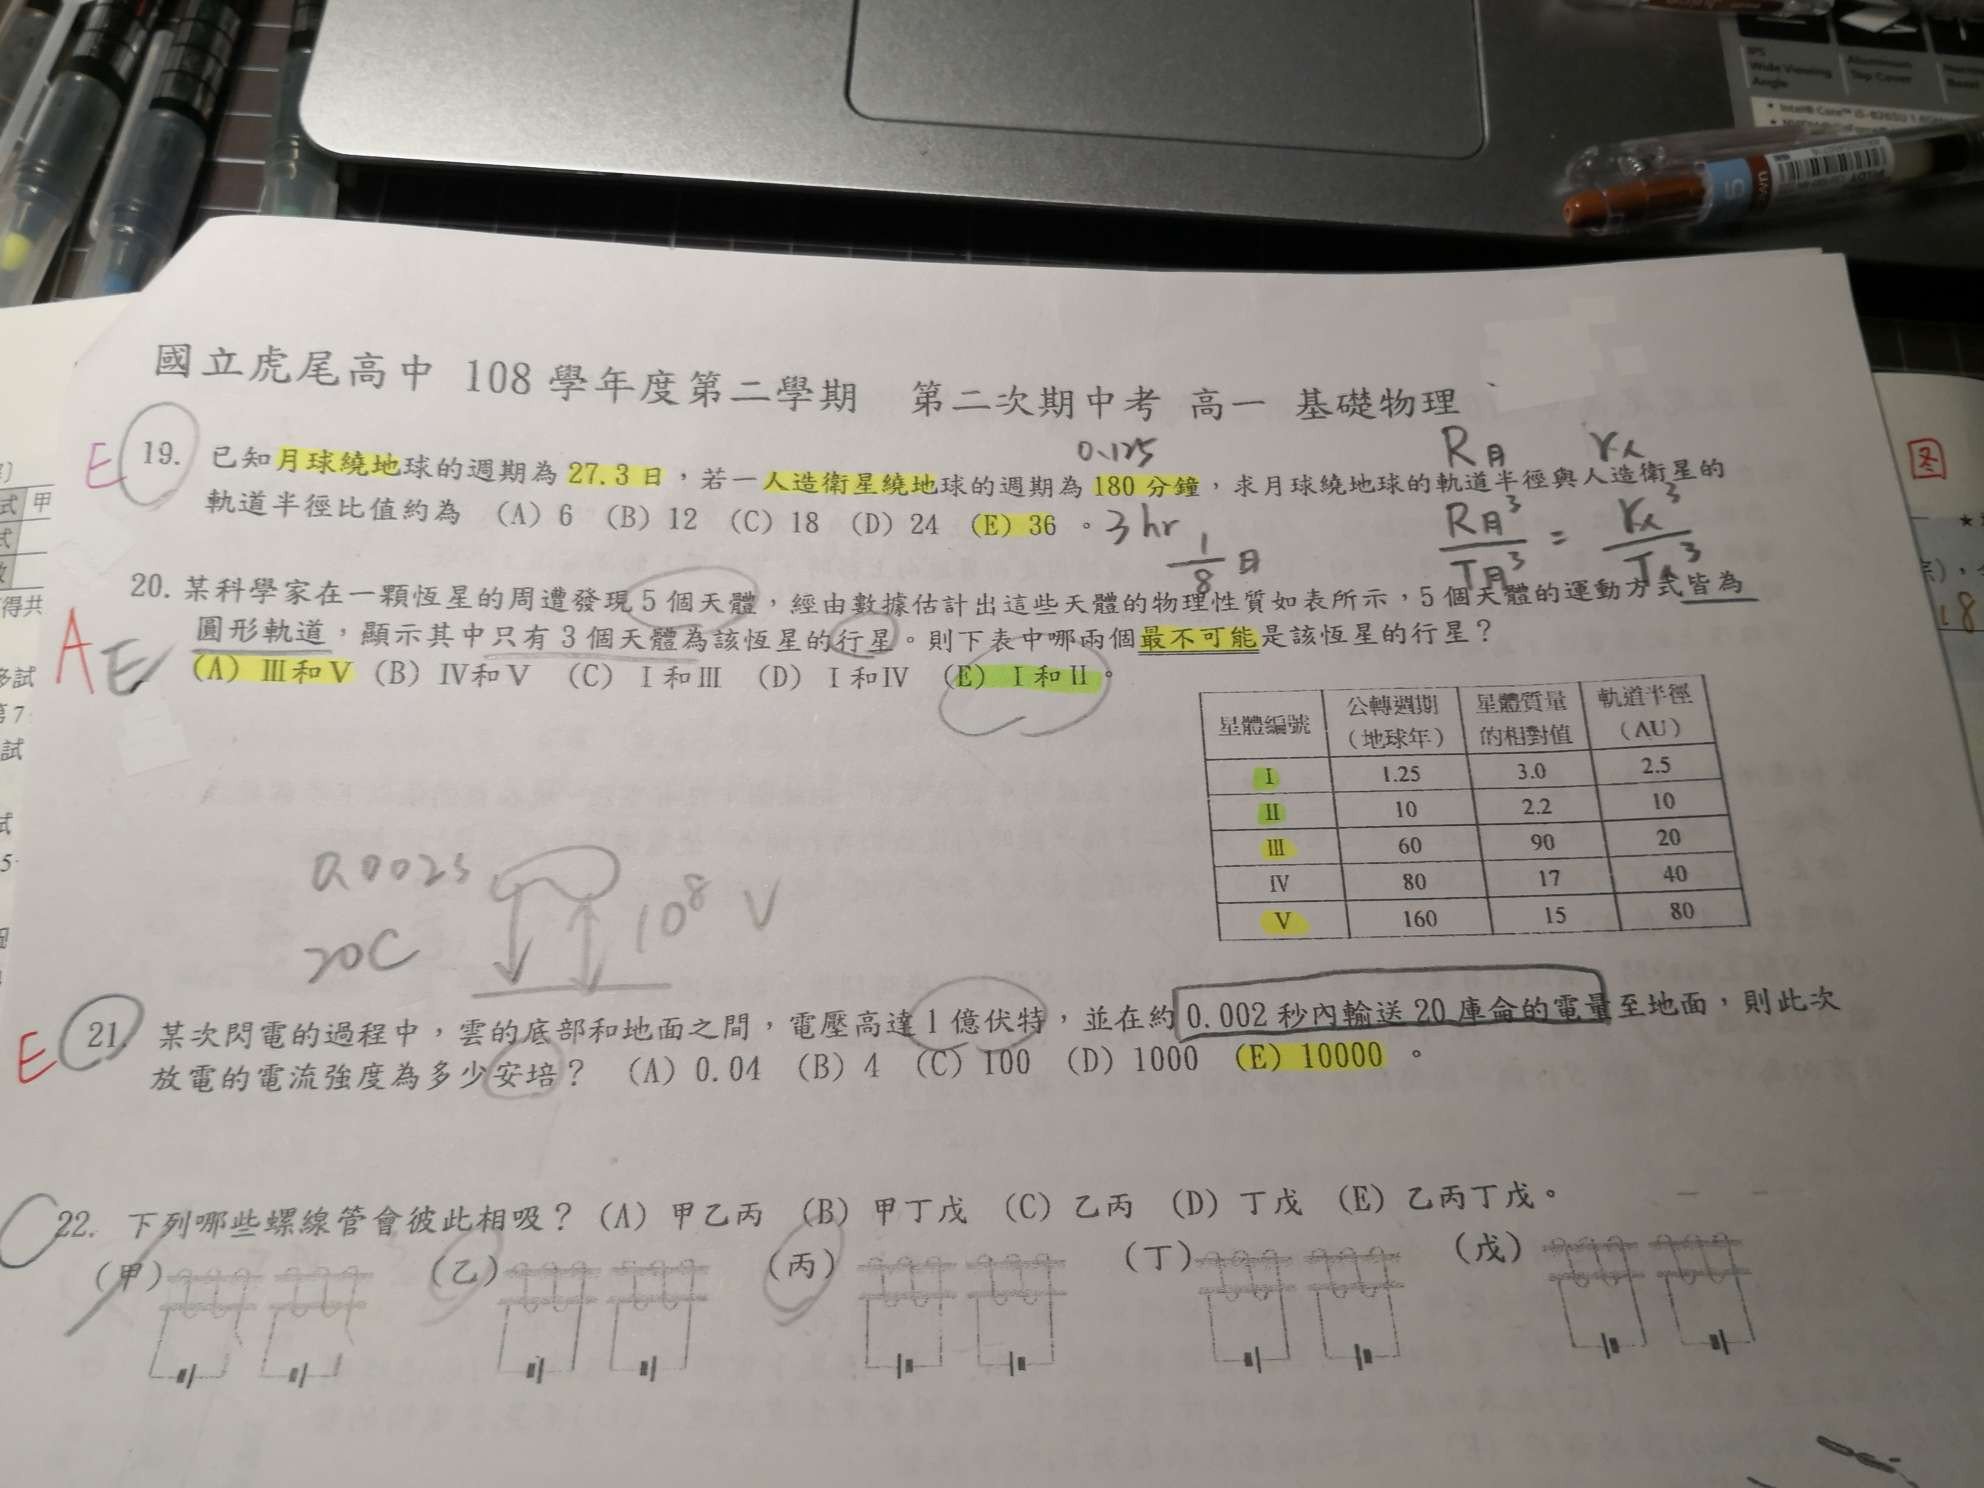 IPS
Wide Viewing
Angle
Aluminum
Top Cover
國立虎尾高中 108 學年度第二學期 第二次期中考 高一 基礎物理
0.125
R月 r人
E 19. 已知月球繞地球的週期為 27.3 日，若一人造衛星繞地球的週期為 180 分鐘，求月球繞地球的軌道半徑與人造衛星的
軌道半徑比值約為 (A) 6 (B) 12 (C) 18 (D) 24 (E) 36 。
3 hr
1/8 日
R月³/T月³ = r人³/T人³
20. 某科學家在一顆恆星的周遭發現 5 個天體，經由數據估計出這些天體的物理性質如表所示，5 個天體的運動方式皆為
圓形軌道，顯示其中只有 3 個天體為該恆星的行星。則下表中哪兩個最不可能是該恆星的行星？
A E (A) Ⅲ和Ⅴ (B) Ⅳ和Ⅴ (C) Ⅰ和Ⅲ (D) Ⅰ和Ⅳ (E) Ⅰ和Ⅱ。
星體編號 公轉週期（地球年） 星體質量的相對值 軌道半徑（AU）
Ⅰ 1.25 3.0 2.5
Ⅱ 10 2.2 10
Ⅲ 60 90 20
Ⅳ 80 17 40
Ⅴ 160 15 80
0.002s
20C
10⁸ V
E 21. 某次閃電的過程中，雲的底部和地面之間，電壓高達 1 億伏特，並在約 0.002 秒內輸送 20 庫侖的電量至地面，則此次
放電的電流強度為多少安培？ (A) 0.04 (B) 4 (C) 100 (D) 1000 (E) 10000 。
22. 下列哪些螺線管會彼此相吸？ (A) 甲乙丙 (B) 甲丁戊 (C) 乙丙 (D) 丁戊 (E) 乙丙丁戊。
(甲) (乙) (丙) (丁) (戊)